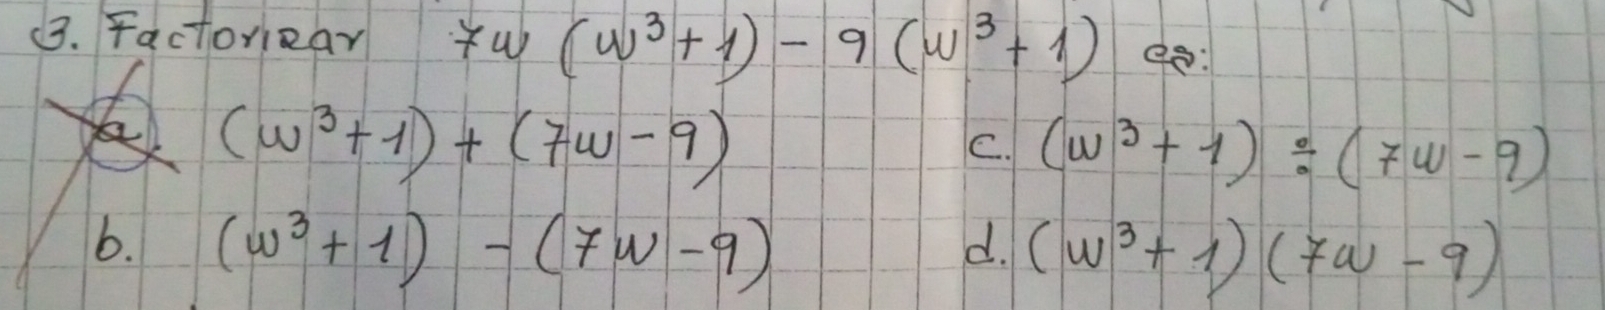 3. Factorizar 7w (w³+1) - 9 (w³+1) es:
a. (w³+1) + (7w-9) c. (w³+1) ÷ (7w-9)
b. (w³+1) - (7w-9) d. (w³+1) (7w-9)